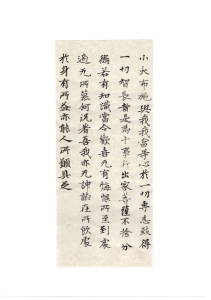 小大布施與我我當等心於一切專志致得
一切智長者是為十事行出家菩薩不捨分
衛若有知識當令歡喜无有悔恨所至到處
適无所慕何況著吾我亦无諍訟在所依處
於身有所益亦能人所願具足